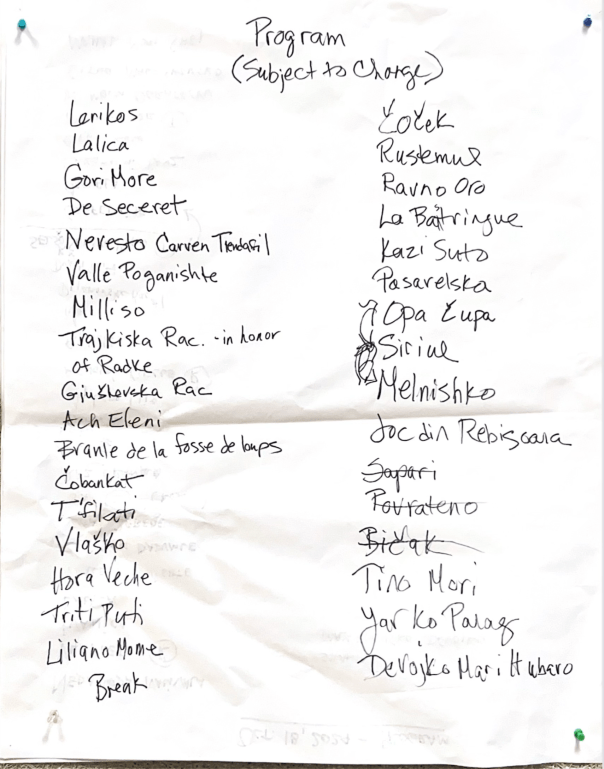 Program
(Subject to Change)
Lerikos
Lalica
Gori More
De Seceret
Nevesto Carven Trendafil
Valle Poganishte
Milliso
Trajkiska Rac. - in honor
of Radke
Gjuševska Rac
Ach Eleni
Branle de la fosse de loups
Čobankat
T'filati
Vlaško
Hora Veche
Triti Puti
Liliano Mome
Break
Čoček
Rustemul
Ravno Oro
La Bâtringue
Kazi Suto
Pasarelska
Opa Čupa
Siriul
Melnishko
Joc din Rebiscoara
Sapari
Povrateno
Bičak
Tino Mori
Yarko Palag
Devojko Mari Hubavo